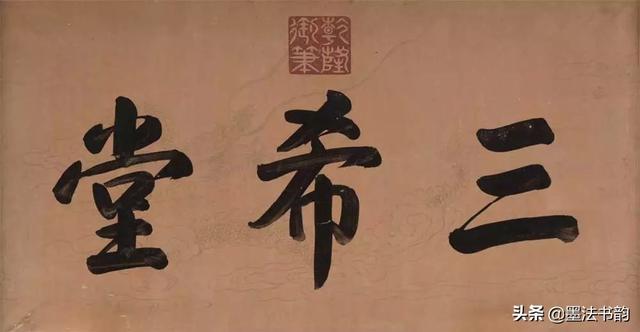 乾隆御筆
三希堂
头条 @墨法书韵